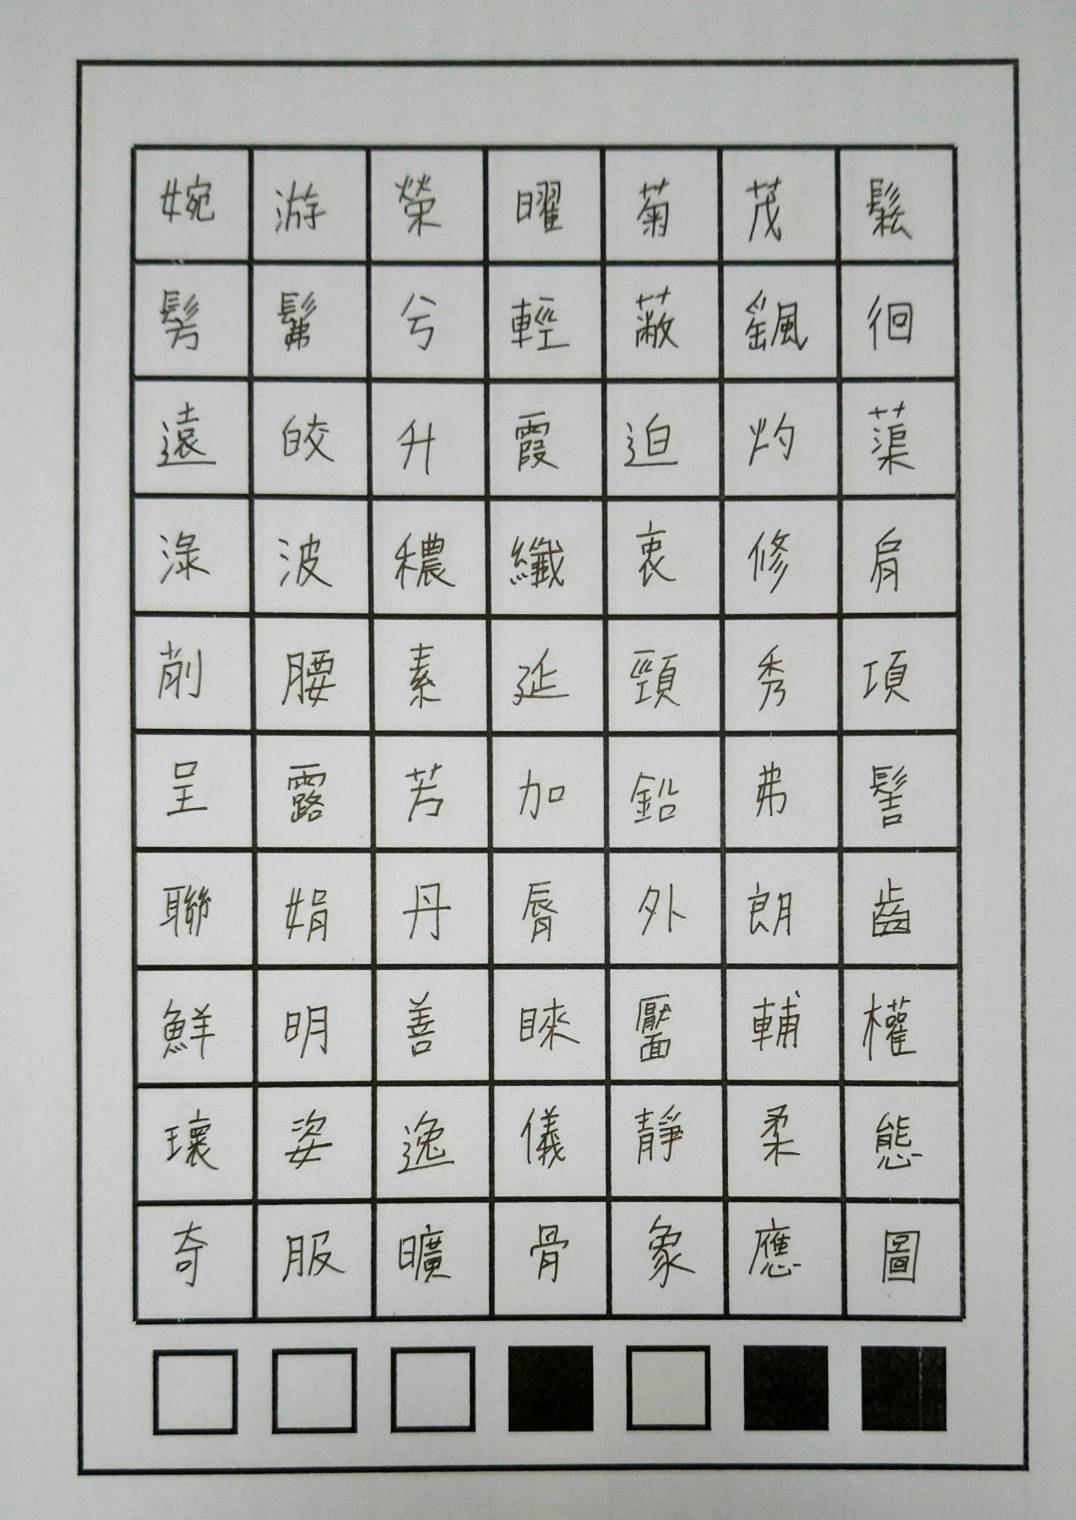 婉游榮曜菊茂鬆
髣髴兮輕蔽飖徊
遠皎升霞迫灼蕖
淥波穠纖衷修肩
削腰素延頸秀項
呈露芳加鉛弗髻
聯娟丹脣外朗齒
鮮明善睞靨輔權
瓌姿逸儀靜柔態
奇服曠骨象應圖